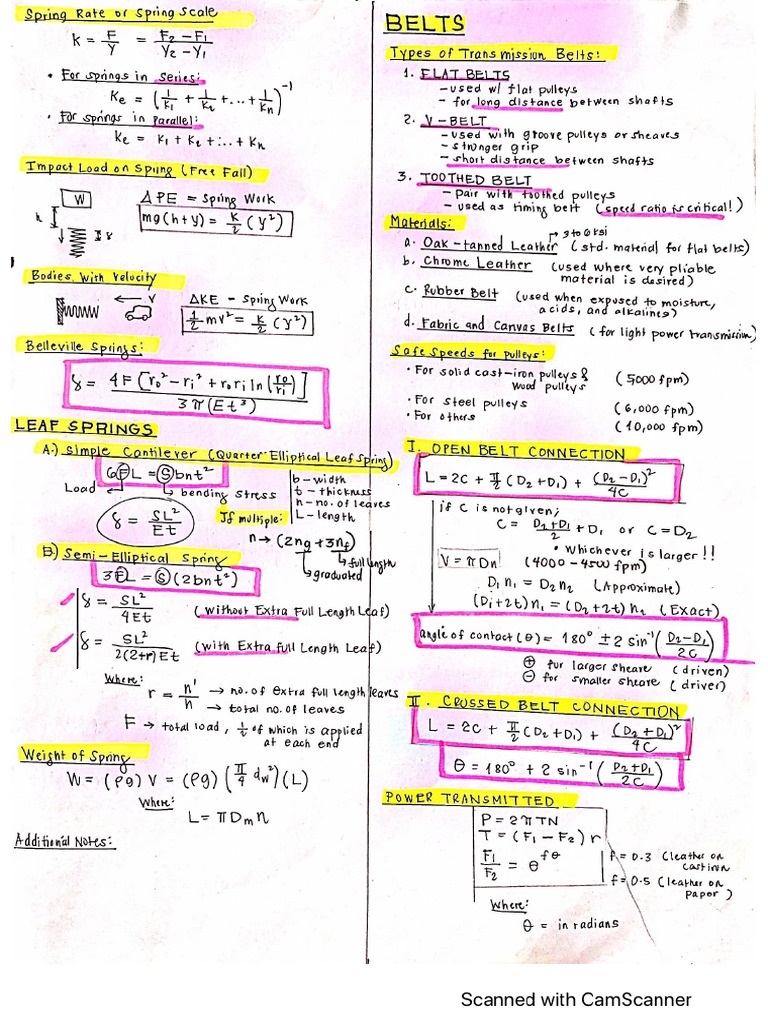 Spring Rate or Spring Scale
K = F/Y = (F₂ − F₁)/(Y₂ − Y₁)
• For springs in series:
Ke = (1/K₁ + 1/K₂ + ... + 1/Kn)⁻¹
• For springs in Parallel:
Ke = K₁ + K₂ + ... + Kn
Impact Load on Spring (Free Fall)
W
h
δ
Δ PE = Spring Work
mg(h+y) = K/2 (y²)
Bodies With Velocity
V
ΔKE − Spring Work
1/2 mv² = K/2 (y²)
Belleville Springs:
δ = 4F[ro² − ri² + rori ln(ro/ri)] / 3π(Et³)
LEAF SPRINGS
A.) Simple Cantilever (Quarter-Elliptical Leaf Spring)
6FL = Sbnt²
Load
bending stress
b - width
t - thickness
n - no. of leaves
L - length
δ = SL²/Et
If multiple:
n → (2ng + 3nf)
full length
graduated
B.) Semi-Elliptical Spring
3FL = S(2bnt²)
δ = SL²/4Et (without Extra Full Length Leaf)
δ = SL²/2(2+r)Et (with Extra Full Length Leaf)
Where:
r = n'/n → no. of extra full length leaves
→ total no. of leaves
F → total load, 1/2 of which is applied
at each end
Weight of Spring
W = (ρg) V = (ρg) (π/4 dw²)(L)
Where:
L = πDmn
Additional Notes:
BELTS
Types of Transmission Belts:
1. FLAT BELTS
- used w/ flat pulleys
- for long distance between shafts
2. V-BELT
- used with groove pulleys or sheaves
- stronger grip
- short distance between shafts
3. TOOTHED BELT
- pair with toothed pulleys
- used as timing belt (speed ratio is critical!)
Materials:
→ 3 to 6 ksi
a. Oak-tanned Leather (std. material for flat belts)
b. Chrome Leather (used where very pliable
material is desired)
c. Rubber Belt (used when exposed to moisture,
acids, and alkalines)
d. Fabric and Canvas Belts (for light power transmission)
Safe Speeds for pulleys:
• For solid cast-iron pulleys &
wood pulleys (5000 fpm)
• For steel pulleys (6,000 fpm)
• For others (10,000 fpm)
I. OPEN BELT CONNECTION
L = 2C + π/2 (D₂ + D₁) + (D₂ − D₁)²/4C
if C is not given;
C = (D₂+D₁)/2 + D₁ or C = D₂
• Whichever is larger!!
V = πDn (4000 - 4500 fpm)
D₁ n₁ = D₂ n₂ (Approximate)
(D₁+2t) n₁ = (D₂+2t) n₂ (Exact)
angle of contact (θ) = 180° ± 2 sin⁻¹ ((D₂ − D₁)/2C)
⊕ for larger sheave (driven)
⊖ for smaller sheave (driver)
II. CROSSED BELT CONNECTION
L = 2C + π/2 (D₂ + D₁) + (D₂ + D₁)²/4C
θ = 180° + 2 sin⁻¹ ((D₂+D₁)/2C)
POWER TRANSMITTED
P = 2πTN
T = (F₁ − F₂) r
F₁/F₂ = e^fθ
f = 0.3 (leather on
cast iron
f = 0.5 (leather on
paper)
Where:
θ = in radians
Scanned with CamScanner